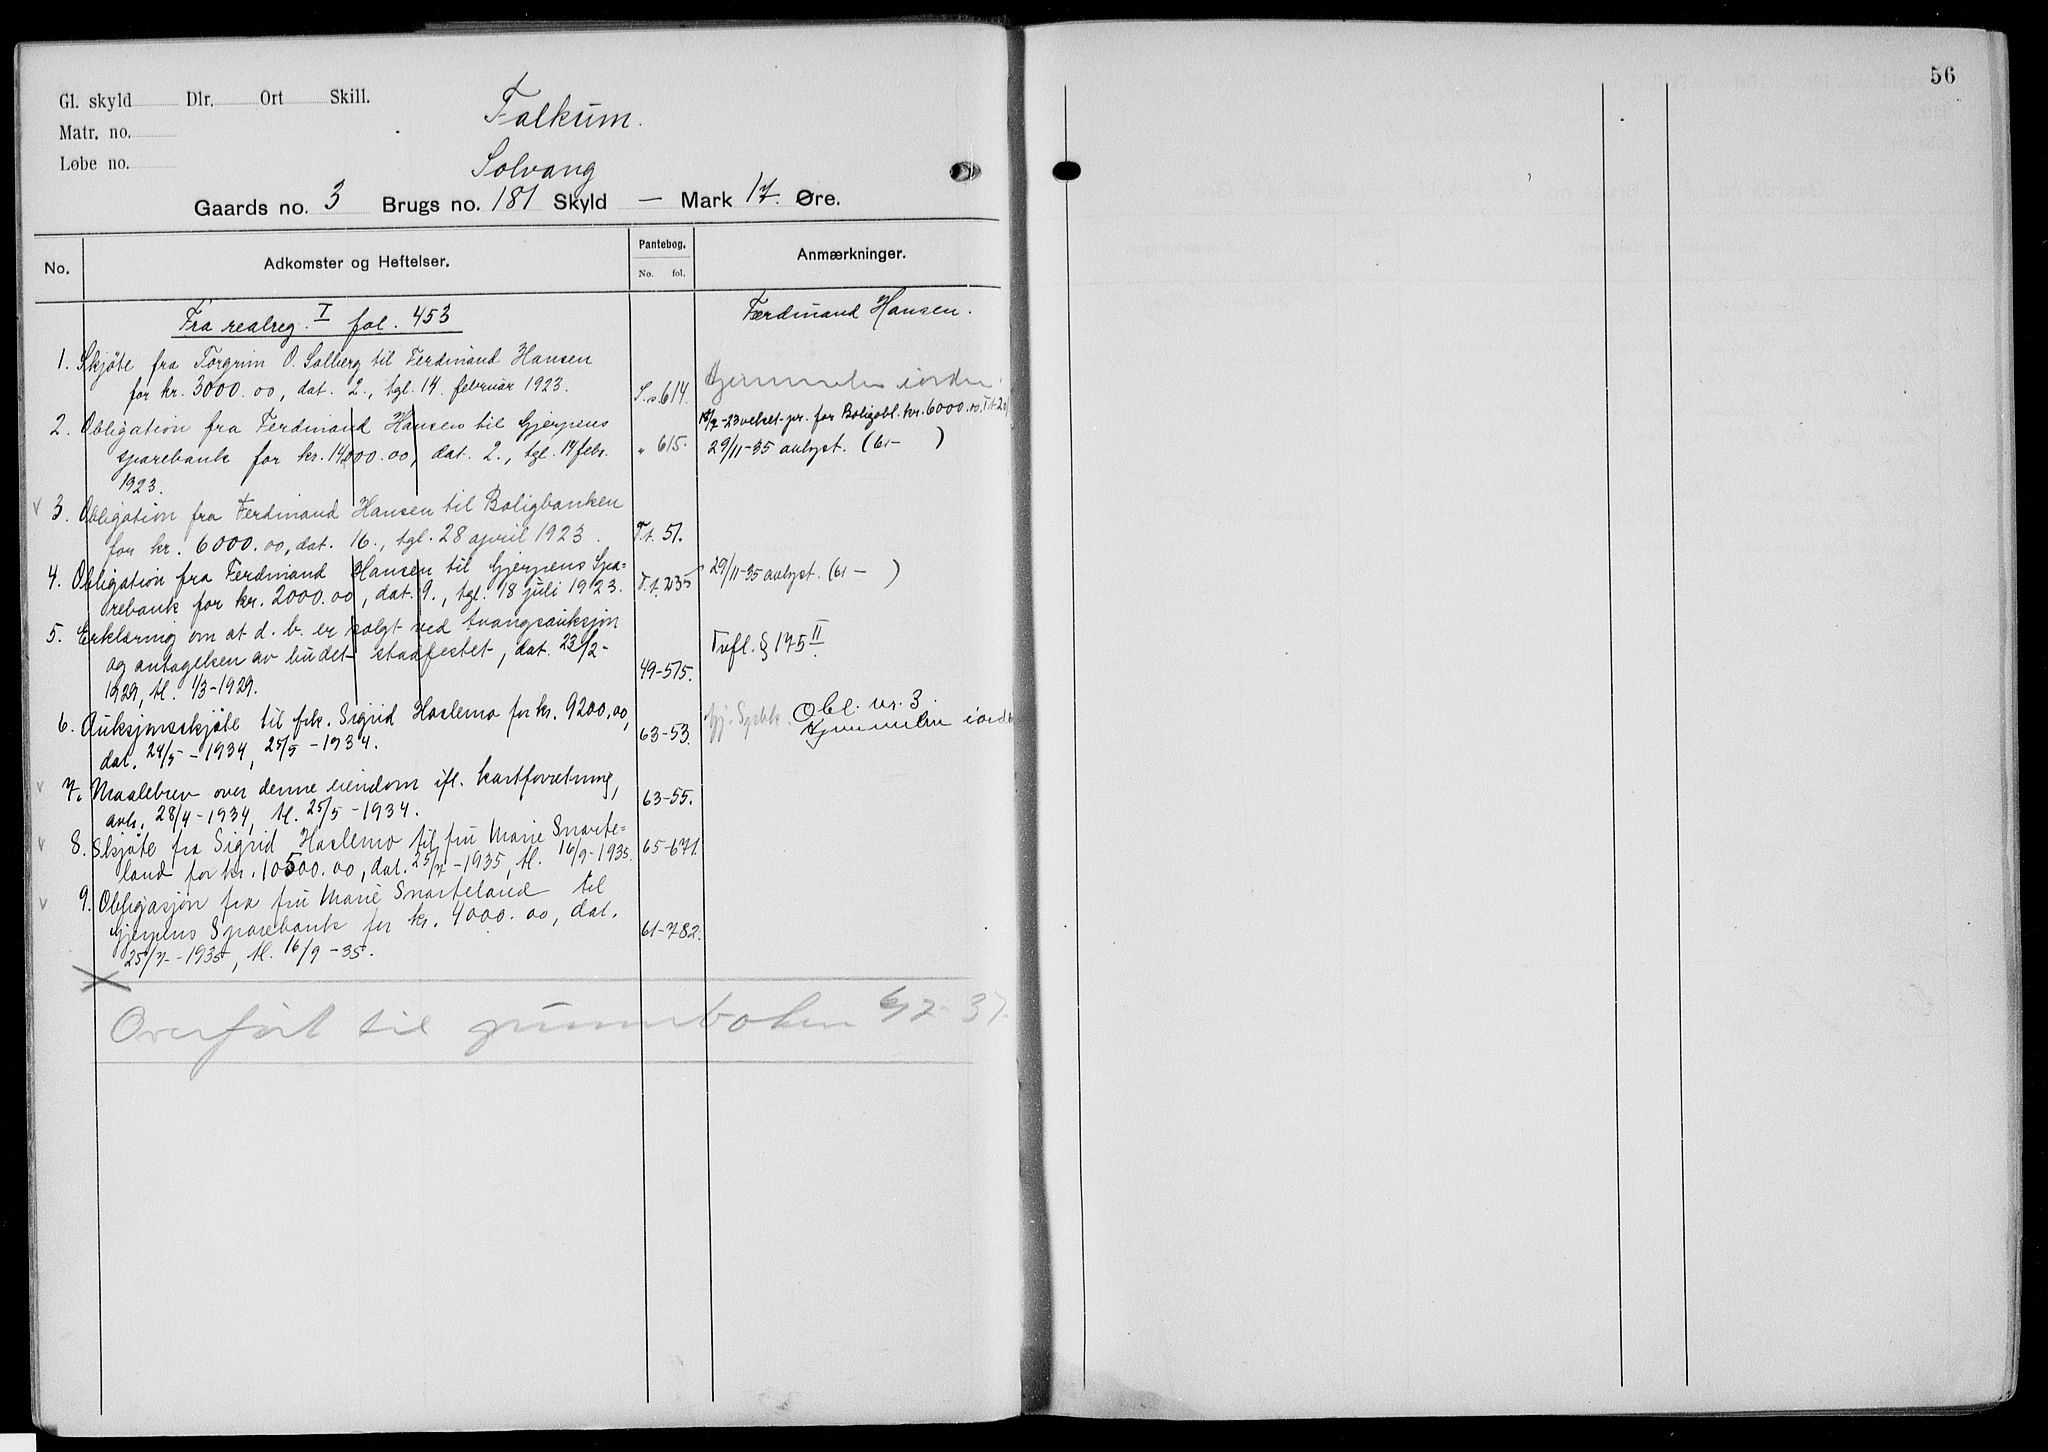 56
Gl. skyld Dlr. Ort Skill.
Matr. no.
Løbe no.
Falkum.
Solvang
Gaards no. 3 Brugs no. 181 Skyld — Mark 17 Øre.
No. Adkomster og Heftelser. Pantebog. No. fol. Anmærkninger.
Fra realreg. I fol. 453 Ferdinand Hansen.
1. Skjøte fra Torgrim O. Solberg til Ferdinand Hansen
for kr. 3000.00, dat. 2., tgl. 14 februar 1923. S.s. 614. Hjemmelen iorden.
2. Obligation fra Ferdinand Hansen til Gjerpens 23 veket pr. for Boligobl. kr. 6000.00.
sparebank for kr. 14000.00, dat. 2., tgl. 14 febr. " 615. 29/11-35 avlyst. (61- )
1923.
v 3. Obligation fra Ferdinand Hansen til Boligbanken
for kr. 6000.00, dat. 16., tgl. 28 april 1923. T.t. 51.
4. Obligation fra Ferdinand Hansen til Gjerpens Spa=
rebank for kr. 2000.00, dat. 9., tgl. 18 juli 1923. T.t. 235 29/11-35 avlyst. (61- )
5. Erklæring om at d. b. er solgt ved tvangsauksjon
og antagelsen av budet stadfestet, dat. 23/2- Tvfl. § 175 II
1929, tl. 1/3-1929. 49-515.
6. Auksjonsskjøte til frk. Sigrid Haslemo for kr. 9200.00, Gj. Spbk. Obl. nr. 3.
dat. 24/5-1934, 25/5-1934. 63-53. Hjemmelen iorden
v 7. Maalebrev over denne eiendom ifl. kartforretning,
avh. 28/4-1934, tl. 25/5-1934. 63-55.
v 8. Skjøte fra Sigrid Haslemo til fru Marie Snarte=
land for kr. 10500.00, dat. 25/7-1935, tl. 16/9-1935. 65-671.
v 9. Obligasjon fra fru Marie Snarteland til
Gjerpens Sparebank for kr. 4000.00, dat. 61-782.
25/7-1935, tl. 16/9-35.
Overført til grunnboken 6/7-37.